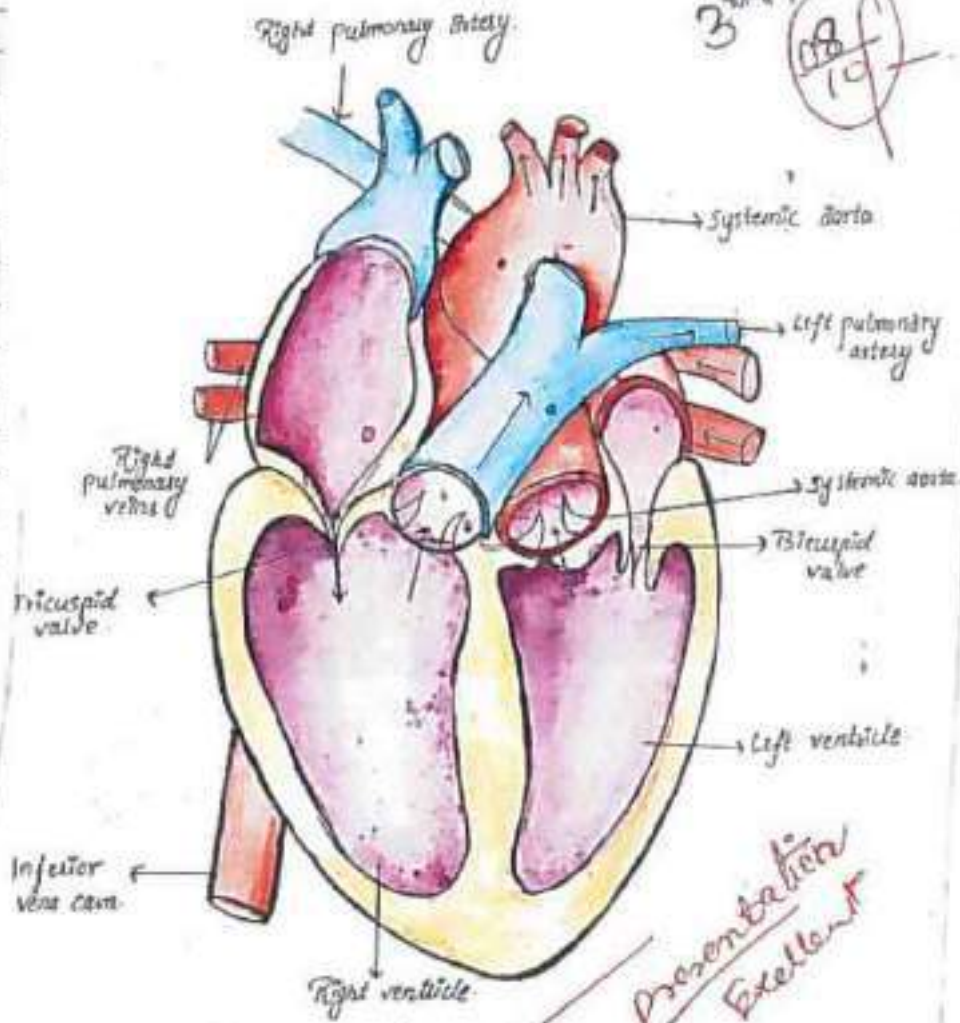 Right pulmonary artery.
3
08
10
Systemic aorta
Left pulmonary
artery
Right
pulmonary
veins
Systemic aorta
Bicuspid
valve
Tricuspid
valve
Left ventricle
Inferior
vena cava
Right ventricle
Presentation
Exellent